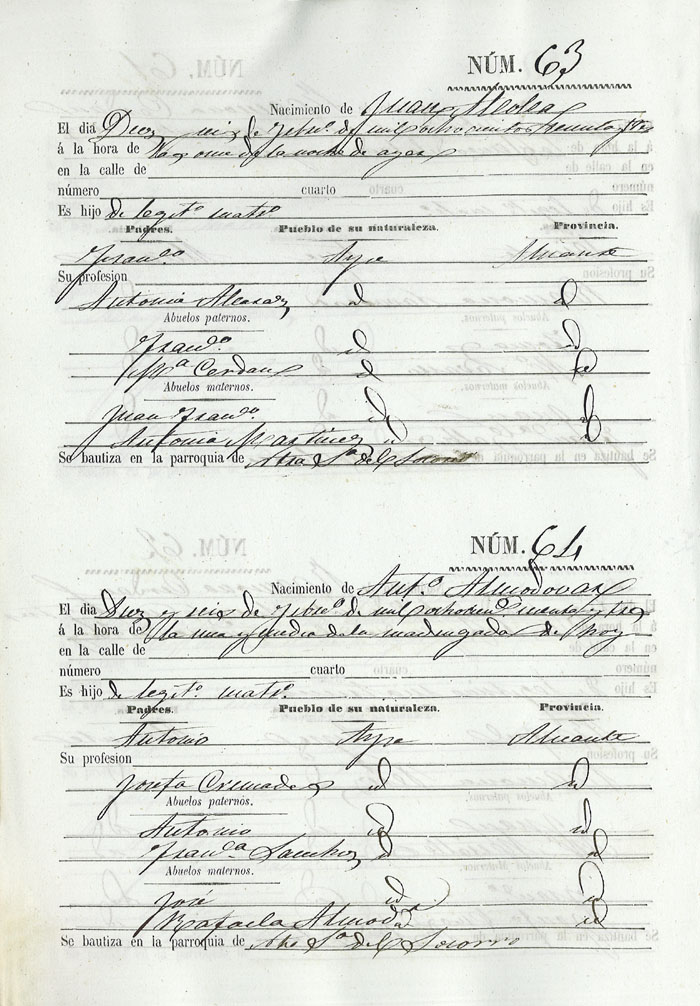 NÚM. 63
Nacimiento de Juan
El dia Diez seis de de mil ochocientos
á la hora de las once de la noche de ayer
en la calle de
número cuarto
Es hijo de legit.º matº
Padres. Pueblo de su naturaleza. Provincia.
Franco Aspe Alicante
Su profesion
Antonia id id
Abuelos paternos.
Franco id id
Mª Cerdan id id
Abuelos maternos.
Juan Franco id id
Antonia Martinez id id
Se bautiza en la parroquia de Ntra Sª del Socorro
NÚM. 64
Nacimiento de Antº Almodovar
El dia Diez y seis de de mil y tres
á la hora de la una y media de la madrugada de hoy
en la calle de
número cuarto
Es hijo de legit.º matº
Padres. Pueblo de su naturaleza. Provincia.
Antonio Aspe Alicante
Su profesion
Josefa Cremades id id
Abuelos paternos.
Antonio id id
Franca Sanchez id id
Abuelos maternos.
José id id
Rafaela id id
Se bautiza en la parroquia de Ntra Sª del Socorro